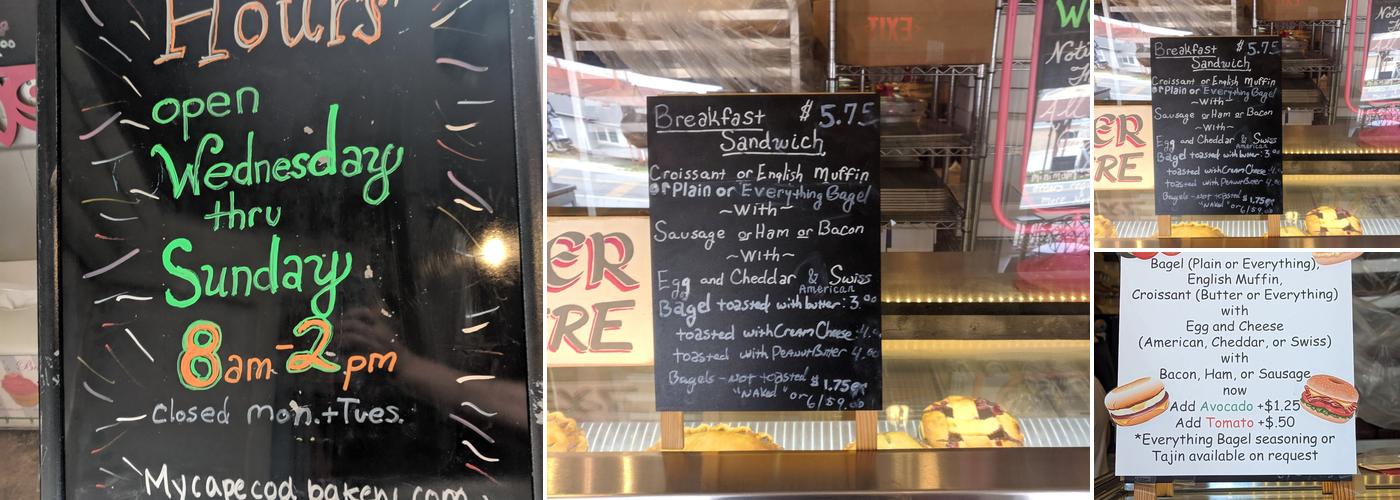 Hours
open
Wednesday
thru
Sunday
8am-2pm
closed mon.+Tues.
Mycapecodbakery.com
EXIT
Breakfast $5.75
Sandwich
Croissant or English Muffin
or Plain or Everything Bagel
~With~
Sausage or Ham or Bacon
~With~
Egg and Cheddar & Swiss
American
Bagel toasted with butter: 3.00
toasted with Cream Cheese: 4.
toasted with Peanut Butter 4.00
Bagels-Not toasted $1.75ea
"NAKED" or 6/$9.00
ER
RE
W
Breakfast $5.75
Sandwich
Croissant or English Muffin
or Plain or Everything Bagel
~With~
Sausage or Ham or Bacon
~With~
Egg and Cheddar & Swiss
American
Bagel toasted with butter: 3.
toasted with Cream Cheese 4.
toasted with Peanut Butter 4.
Bagels-Not toasted $1.75
"NAKED" or 6/$9.
ER
RE
Bagel (Plain or Everything),
English Muffin,
Croissant (Butter or Everything)
with
Egg and Cheese
(American, Cheddar, or Swiss)
with
Bacon, Ham, or Sausage
now
Add Avocado +$1.25
Add Tomato +$.50
*Everything Bagel seasoning or
Tajin available on request